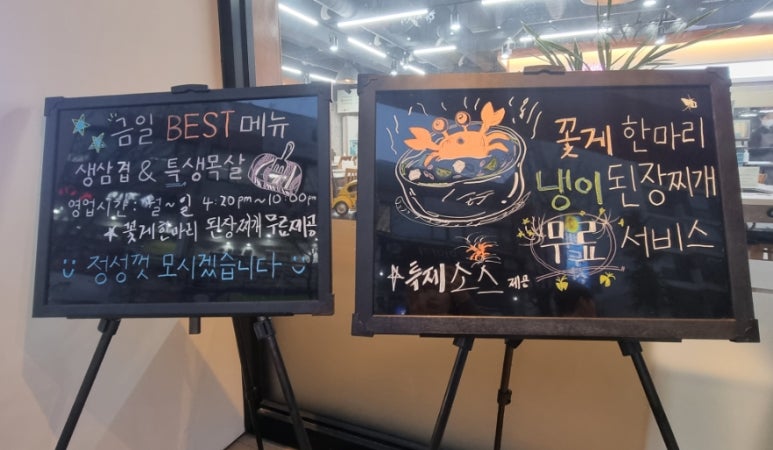 금일 BEST 메뉴
생삼겹 & 특생목살
영업시간 : 월~일 4:20pm~10:00pm
꽃게한마리 된장찌개 무료제공
정성껏 모시겠습니다
꽃게 한마리
냉이 된장찌개
무료 서비스
특제 소스 제공